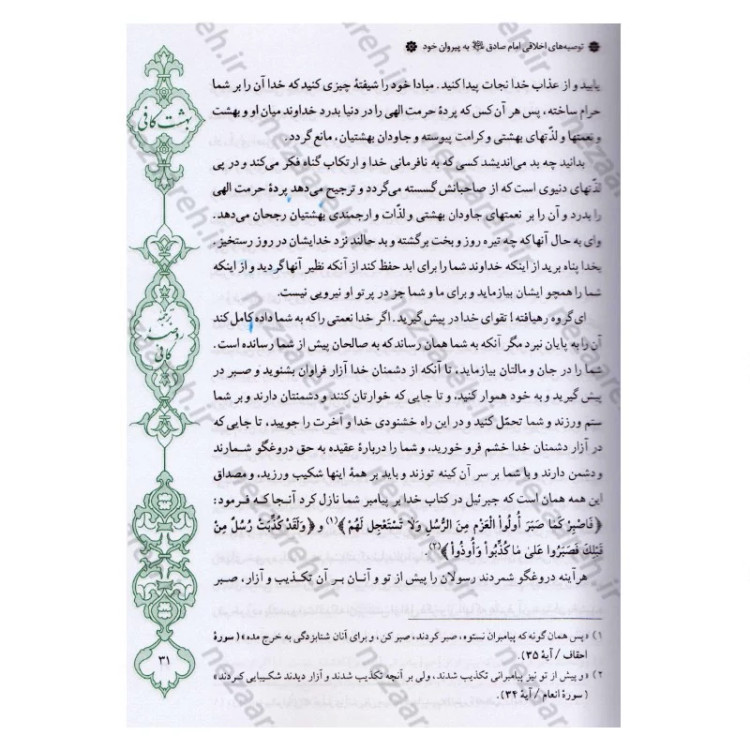 توصیه‌های اخلاقی امام صادق ﷷ به پیروان خود
بهشت کافی
ترجمه
روضه
کافی
یابید و از عذاب خدا نجات پیدا کنید. مبادا خود را شیفتهٔ چیزی کنید که خدا آن را بر شما
حرام ساخته، پس هر آن کس که پردهٔ حرمت الهی را در دنیا بدرد خداوند میان او و بهشت
و نعمتها و لذّتهای بهشتی و کرامت پیوسته و جاودان بهشتیان، مانع گردد.
بدانید چه بد می‌اندیشد کسی که به نافرمانی خدا و ارتکاب گناه فکر می‌کند و در پی
لذّتهای دنیوی است که از صاحبانش گسسته می‌گردد و ترجیح می‌دهد پردهٔ حرمت الهی
را بدرد و آن را بر نعمتهای جاودان بهشتی و لذّات و ارجمندی بهشتیان رجحان می‌دهد.
وای به حال آنها که چه تیره روز و بخت برگشته و بد حالند نزد خدایشان در روز رستخیز.
بخدا پناه برید از اینکه خداوند شما را برای ابد حفظ کند از آنکه نظیر آنها گردید و از اینکه
شما را همچو ایشان بیازماید و برای ما و شما جز در پرتو او نیرویی نیست.
ای گروه رهیافته! تقوای خدا در پیش گیرید. اگر خدا نعمتی را که به شما داده کامل کند
آن را به پایان نبرد مگر آنکه به شما همان رساند که به صالحان پیش از شما رسانده است.
شما را در جان و مالتان بیازماید، تا آنکه از دشمنان خدا آزار فراوان بشنوید و صبر در
پیش گیرید و به خود هموار کنید، و تا جایی که خوارتان کنند و دشمنتان دارند و بر شما
ستم ورزند و شما تحمّل کنید و در این راه خشنودی خدا و آخرت را جویید، تا جایی که
در آزار دشمنان خدا خشم فرو خورید، و شما را دربارهٔ عقیده به حق دروغگو شمارند
و دشمن دارند و با شما بر سر آن کینه توزند و باید بر همهٔ اینها شکیب ورزید، و مصداق
این همه همان است که جبرئیل در کتاب خدا بر پیامبر شما نازل کرد آنجا که فرمود:
﴿فَاصْبِرْ كَمَا صَبَرَ أُولُوا الْعَزْمِ مِنَ الرُّسُلِ وَلَا تَسْتَعْجِل لَهُمْ﴾(۱) و ﴿وَلَقَدْ كُذِّبَتْ رُسُلٌ مِنْ
قَبْلِكَ فَصَبَرُوا عَلَىٰ مَا كُذِّبُوا وَأُوذُوا﴾(۲).
هرآینه دروغگو شمردند رسولان را پیش از تو و آنان بر آن تکذیب و آزار، صبر
۱) «پس همان گونه که پیامبران نستوه، صبر کردند، صبر کن، و برای آنان شتابزدگی به خرج مده» (سورهٔ
احقاف / آیهٔ ۳۵).
۲) «و پیش از تو نیز پیامبرانی تکذیب شدند، ولی بر آنچه تکذیب شدند و آزار دیدند شکیبایی کردند»
(سورهٔ انعام / آیهٔ ۳۴).
۳۱
nezaareh.ir